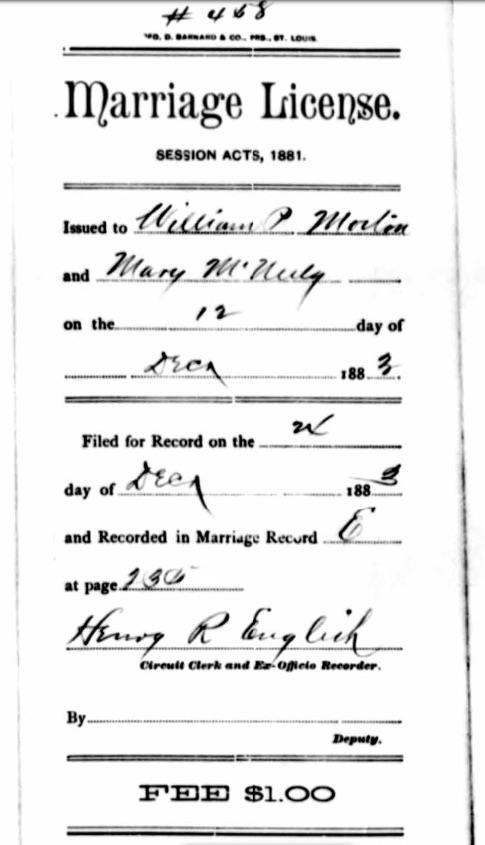 # 458
GEO. D. BARNARD & CO., PRS., ST. LOUIS.
Marriage License.
SESSION ACTS, 1881.
Issued to William P Morton
and Mary McNeely
on the 12 day of
Decr 1883.
Filed for Record on the
day of Decr 1883
and Recorded in Marriage Record E
at page 236
Henry R English
Circuit Clerk and Ex-Officio Recorder.
By
Deputy.
FEE $1.00